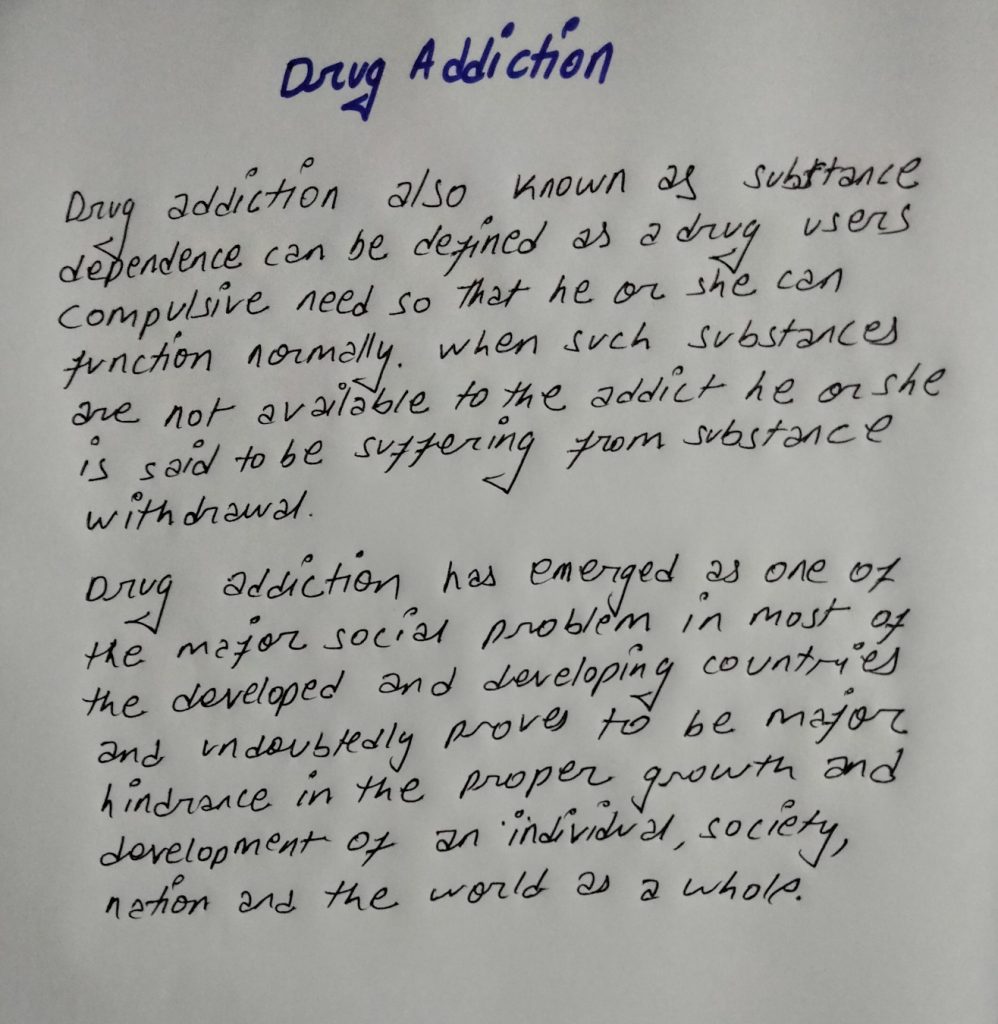 Drug Addiction
Drug addiction also known as substance
dependence can be defined as a drug users
compulsive need so that he or she can
function normally. when such substances
are not available to the addict he or she
is said to be suffering from substance
withdrawal.
Drug addiction has emerged as one of
the major social problem in most of
the developed and developing countries
and undoubtedly proves to be major
hindrance in the proper growth and
development of an individual, society,
nation and the world as a whole.